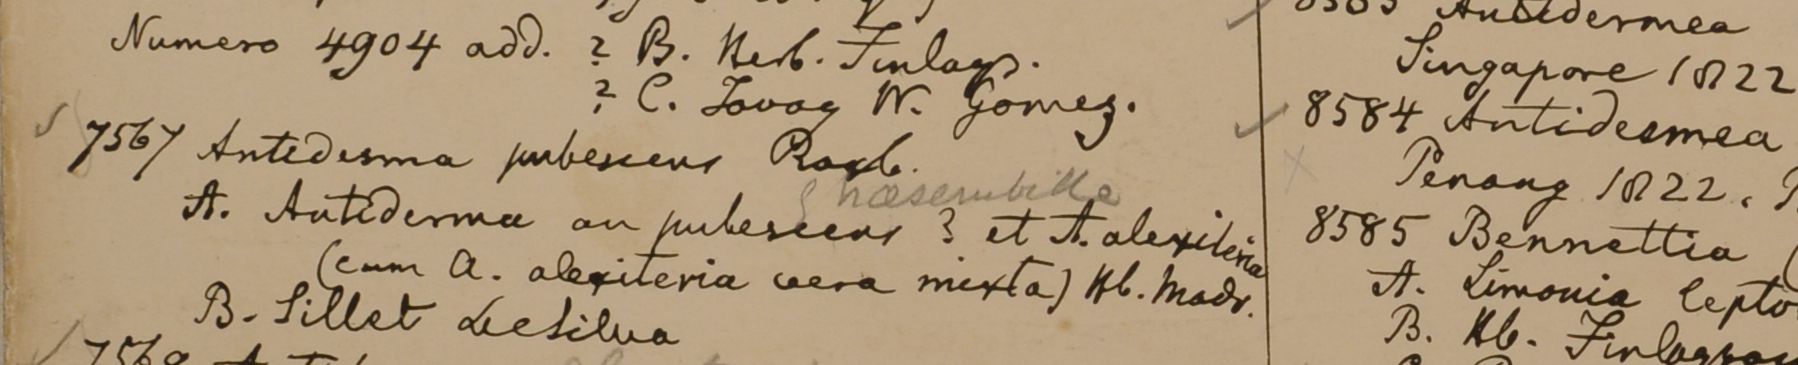 Numero 4904 add. ? B. Herb. Finlays.
? C. Tavoy W. Gomez.
7567 Antidesma pubescens Roxb.
A. Antidesma an pubescens? et A. alexiteria
(cum A. alexiteria vera mixta) Hb. Madr.
B. Sillet DeSilva
8583 Antidesmea
Singapore 1822
8584 Antidesmea
Penang 1822.
8585 Bennettia (
A. Limonia lepto
B. Hb. Finlayson